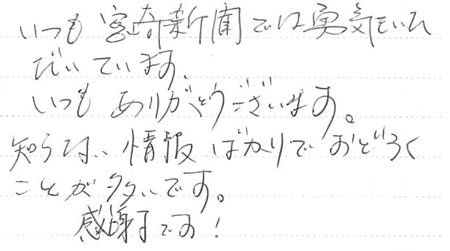 いつも宮崎新聞では勇気をいた
だいています。
いつもありがとうございます。
知らない情報ばかりでおどろく
ことが多いです。
感謝です!